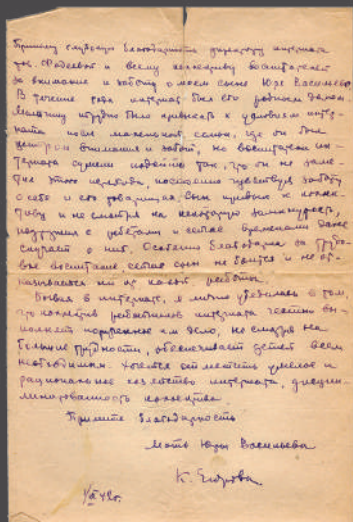 Приношу глубокую благодарность директору интерната
тов. Фадеевой и всему коллективу воспитателей
за внимание и заботу о моем сыне Юре Васильеве.
В течение года интернат был его родным домом.
Мальчику трудно было привыкать к условиям интер-
ната после маленькой семьи, где он был
центром внимания и забот, но воспитатели ин-
терната сумели подойти так, что он не заме-
тил этого перехода, постоянно чувствуя заботу
о себе и его товарищах. Сын привык к коллек-
тиву и не смотря на некоторую замкнутость,
подружился с ребятами и сейчас временами даже
скучает о них. Особенно благодарна за трудо-
вое воспитание, сейчас сын не боится и не от-
казывается ни от какой работы.
Бывая в интернате, я лично убедилась в том,
что коллектив работников интерната честно вы-
полняет порученное им дело, не смотря на
большие трудности, обеспечивает детей всем
необходимым. Хочется отметить умелое и
рациональное хозяйство интерната, дисцип-
линированность коллектива.
Примите благодарность
Мать Юры Васильева
К. Егорова
42г.